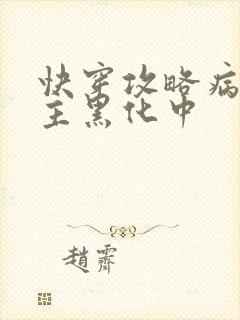 快穿攻略病
主黑化中
趙霽